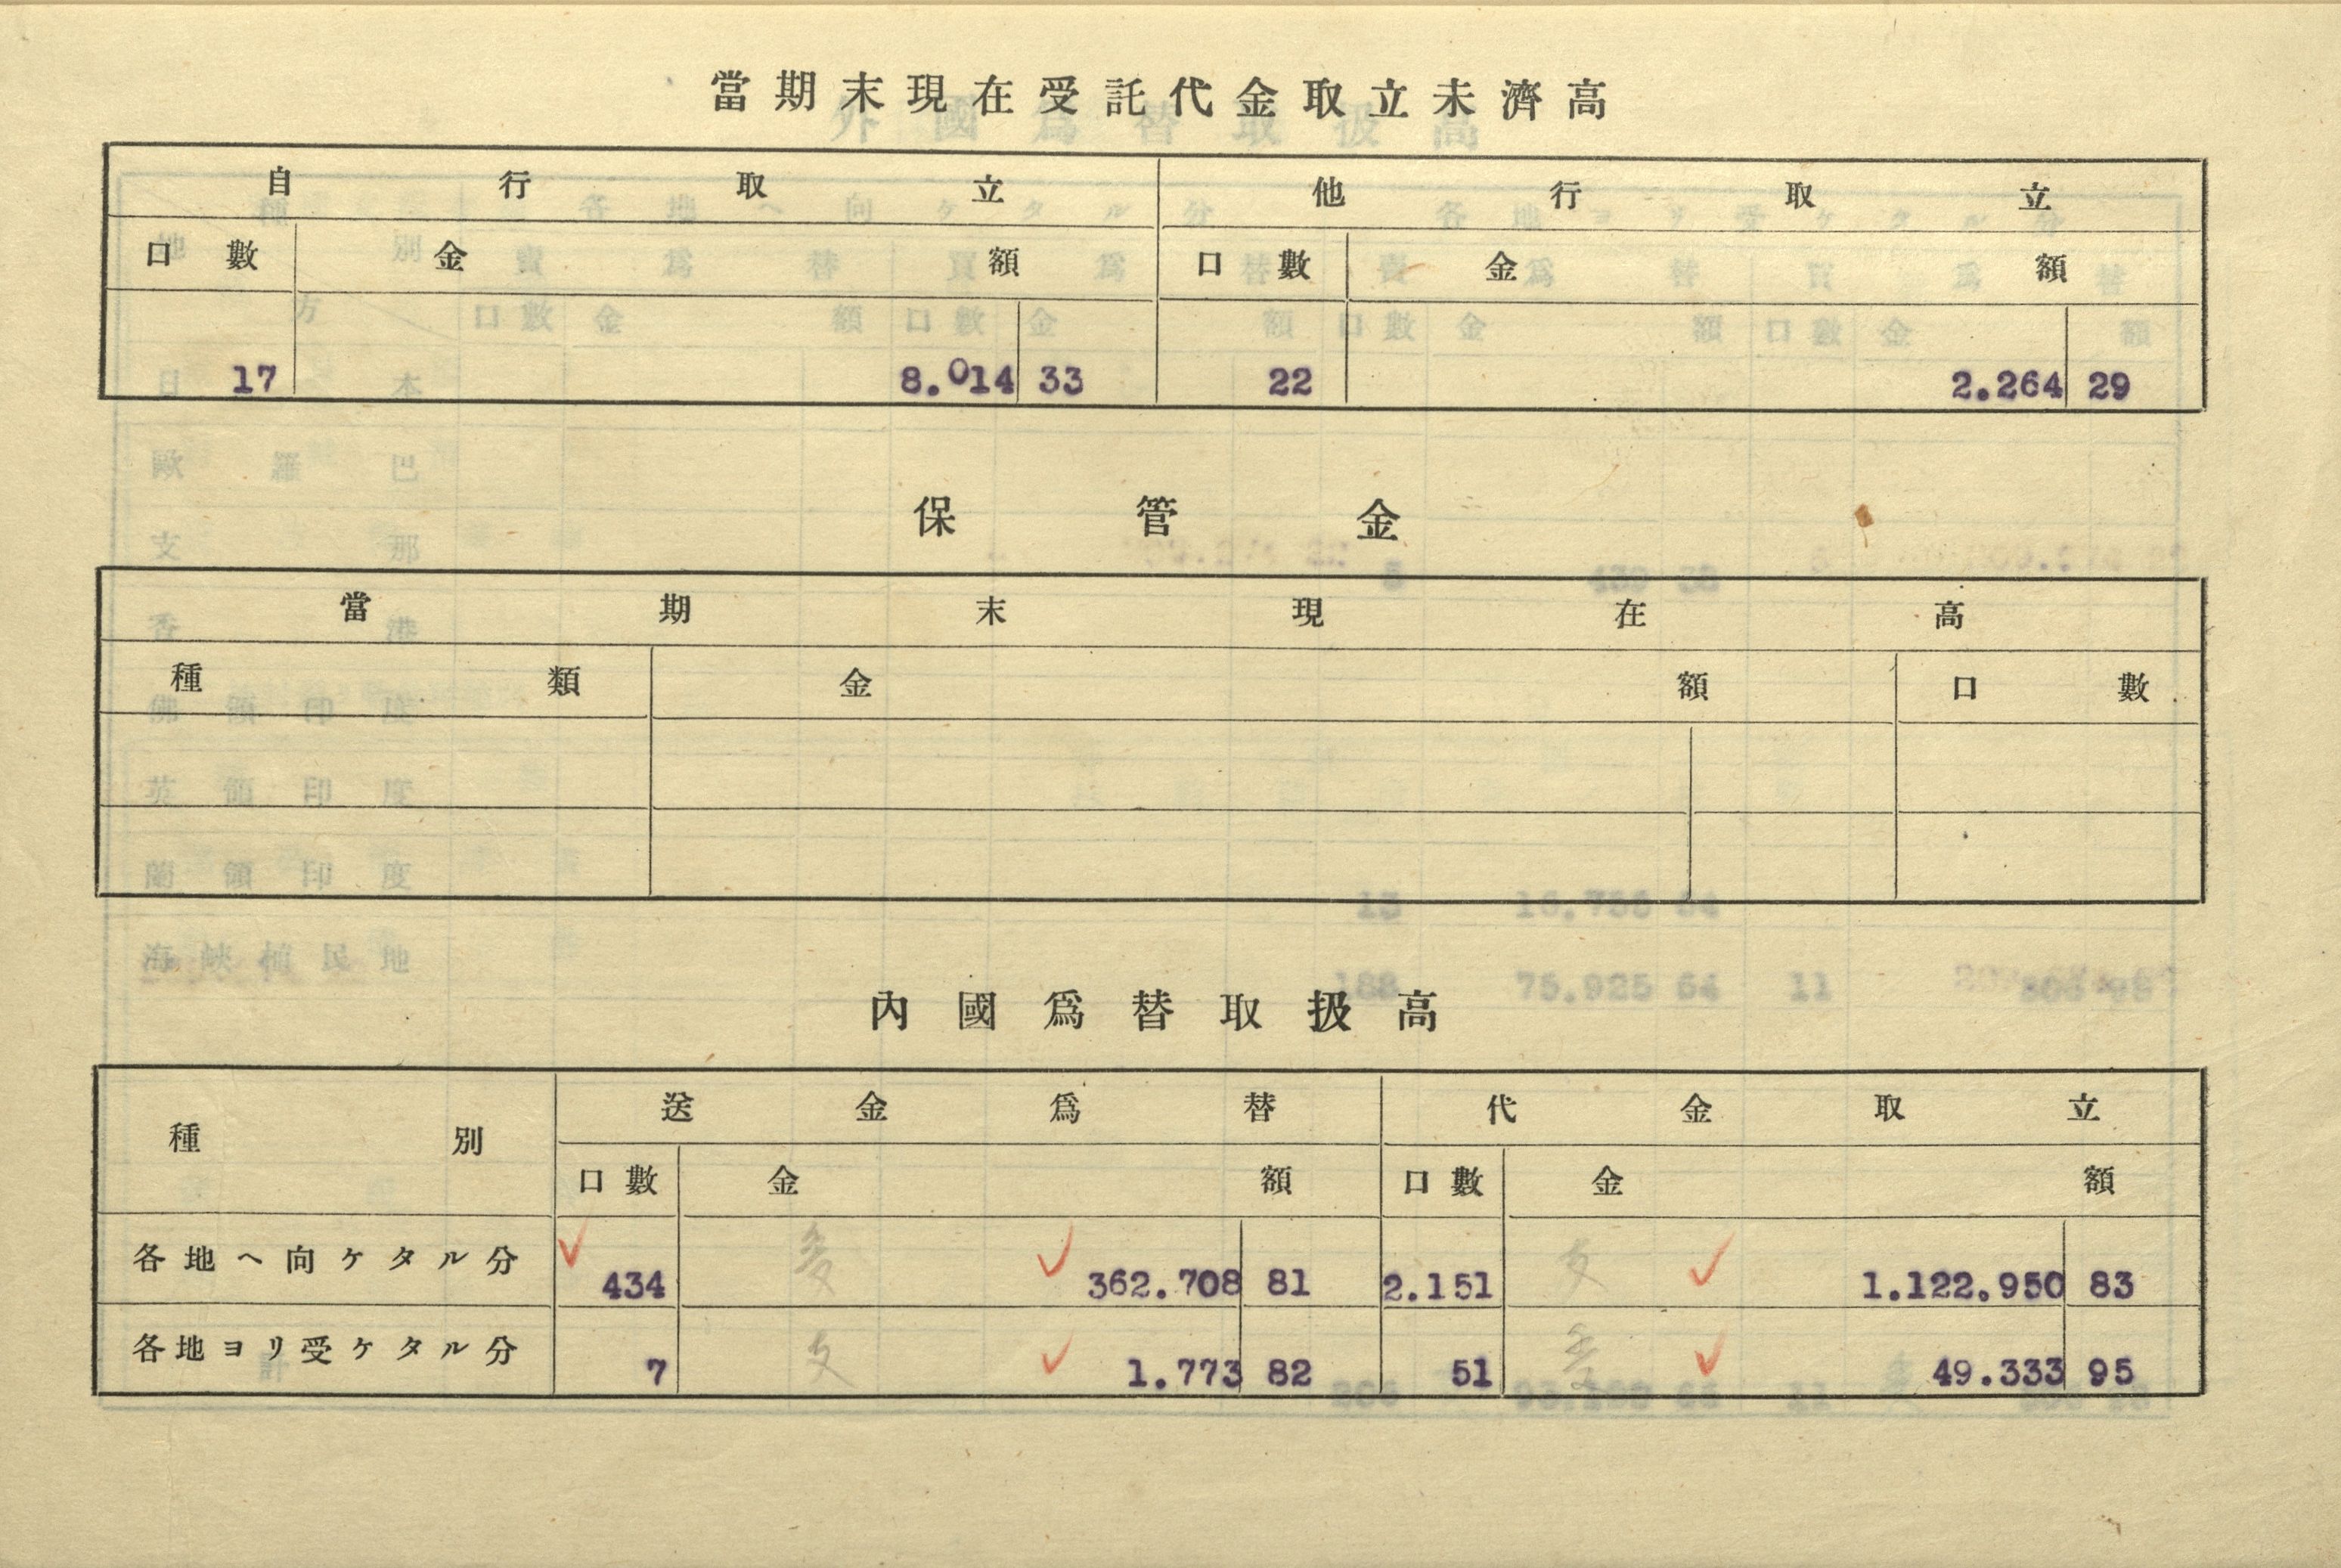 當期末現在受託代金取立未濟高
自行取立 他行取立
口數 金額 口數 金額
17 8.014 33 22 2.264 29
保管金
當期末現在高
種類 金額 口數
內國爲替取扱高
種別 送金爲替 代金取立
口數 金額 口數 金額
各地ヘ向ケタル分 434 362.708 81 2.151 1.122.950 83
各地ヨリ受ケタル分 7 1.773 82 51 49.333 95